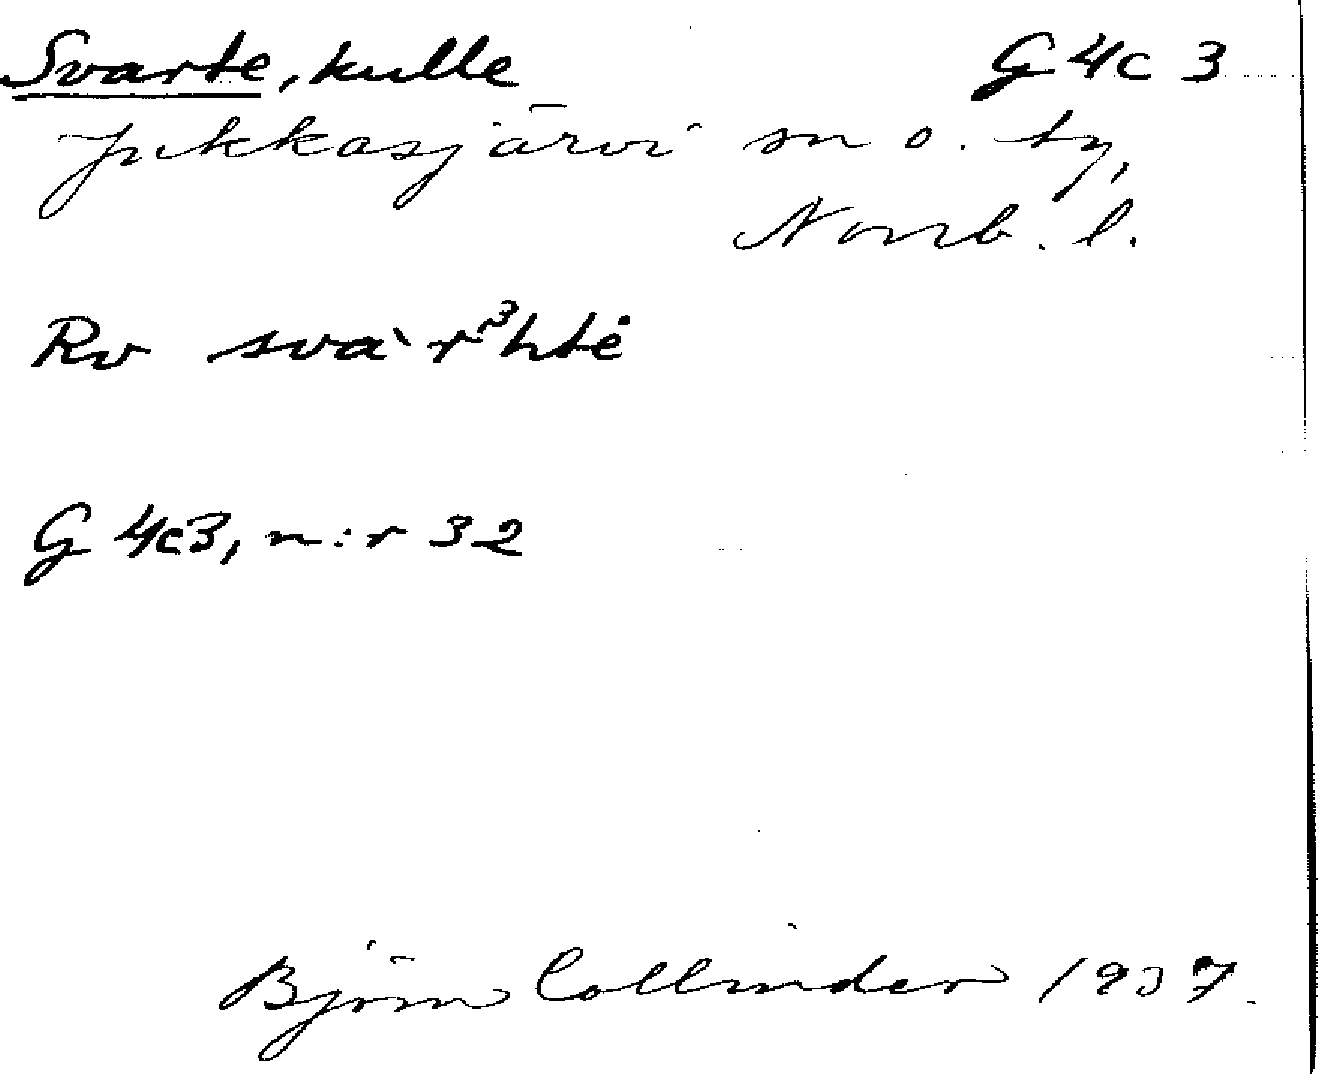 Svarte, kulle G 4c 3
Jukkasjärvi sn o. tg,
Norrb. l.
Rv svaˋrᵌhtė
G 4c3, n:r 32
Björn Collinder 1937.